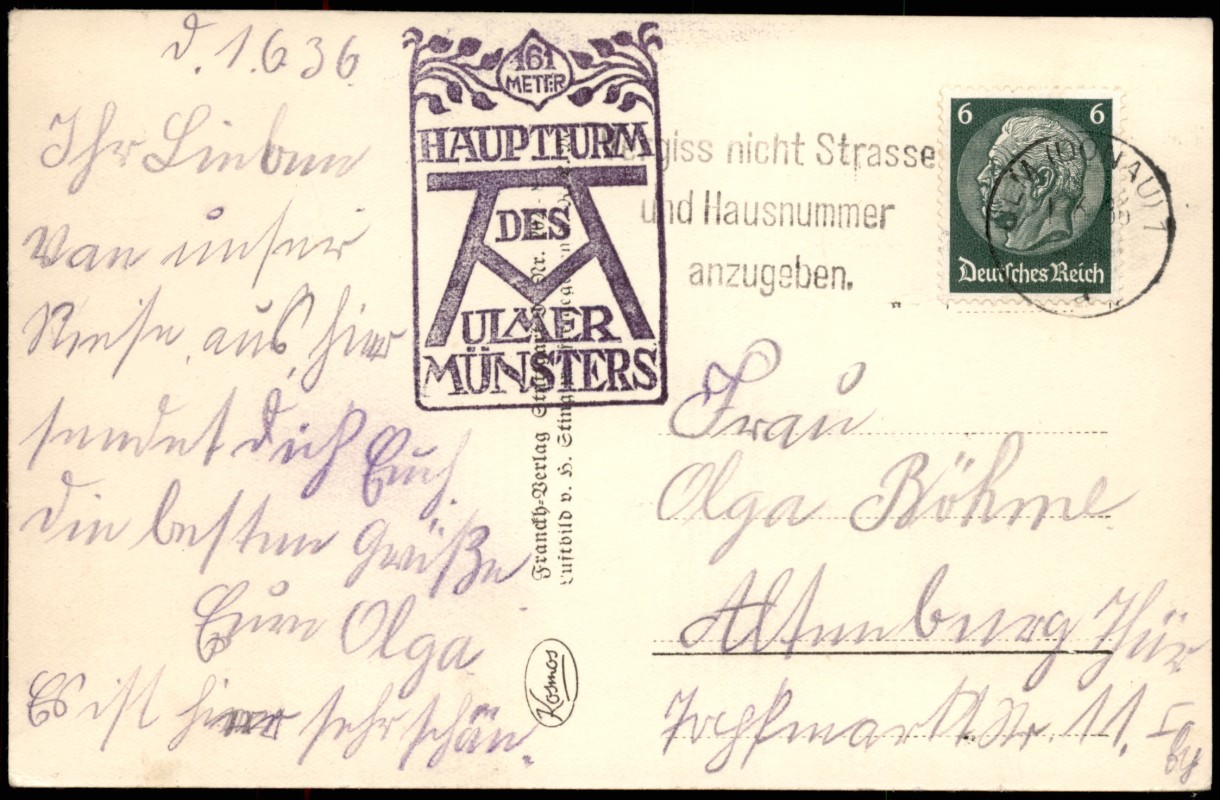 d. 1.6.36
Ihr Lieben
Von unser
Reise, aus, hier
sendet dich Euch.
die besten Grüße
Eure Olga
Es ist hier sehr schön.
161
METER
HAUPTTURM
DES
ULMER
MÜNSTERS
giss nicht Strasse
und Hausnummer
anzugeben.
6 6
Deutsches Reich
ULM (DONAU) 1
Franckh-Verlag
Luftbild v. H.
Kosmos
Frau
Olga Böhme
Altenburg Thür
Topfmarkt. Nr. 11. I